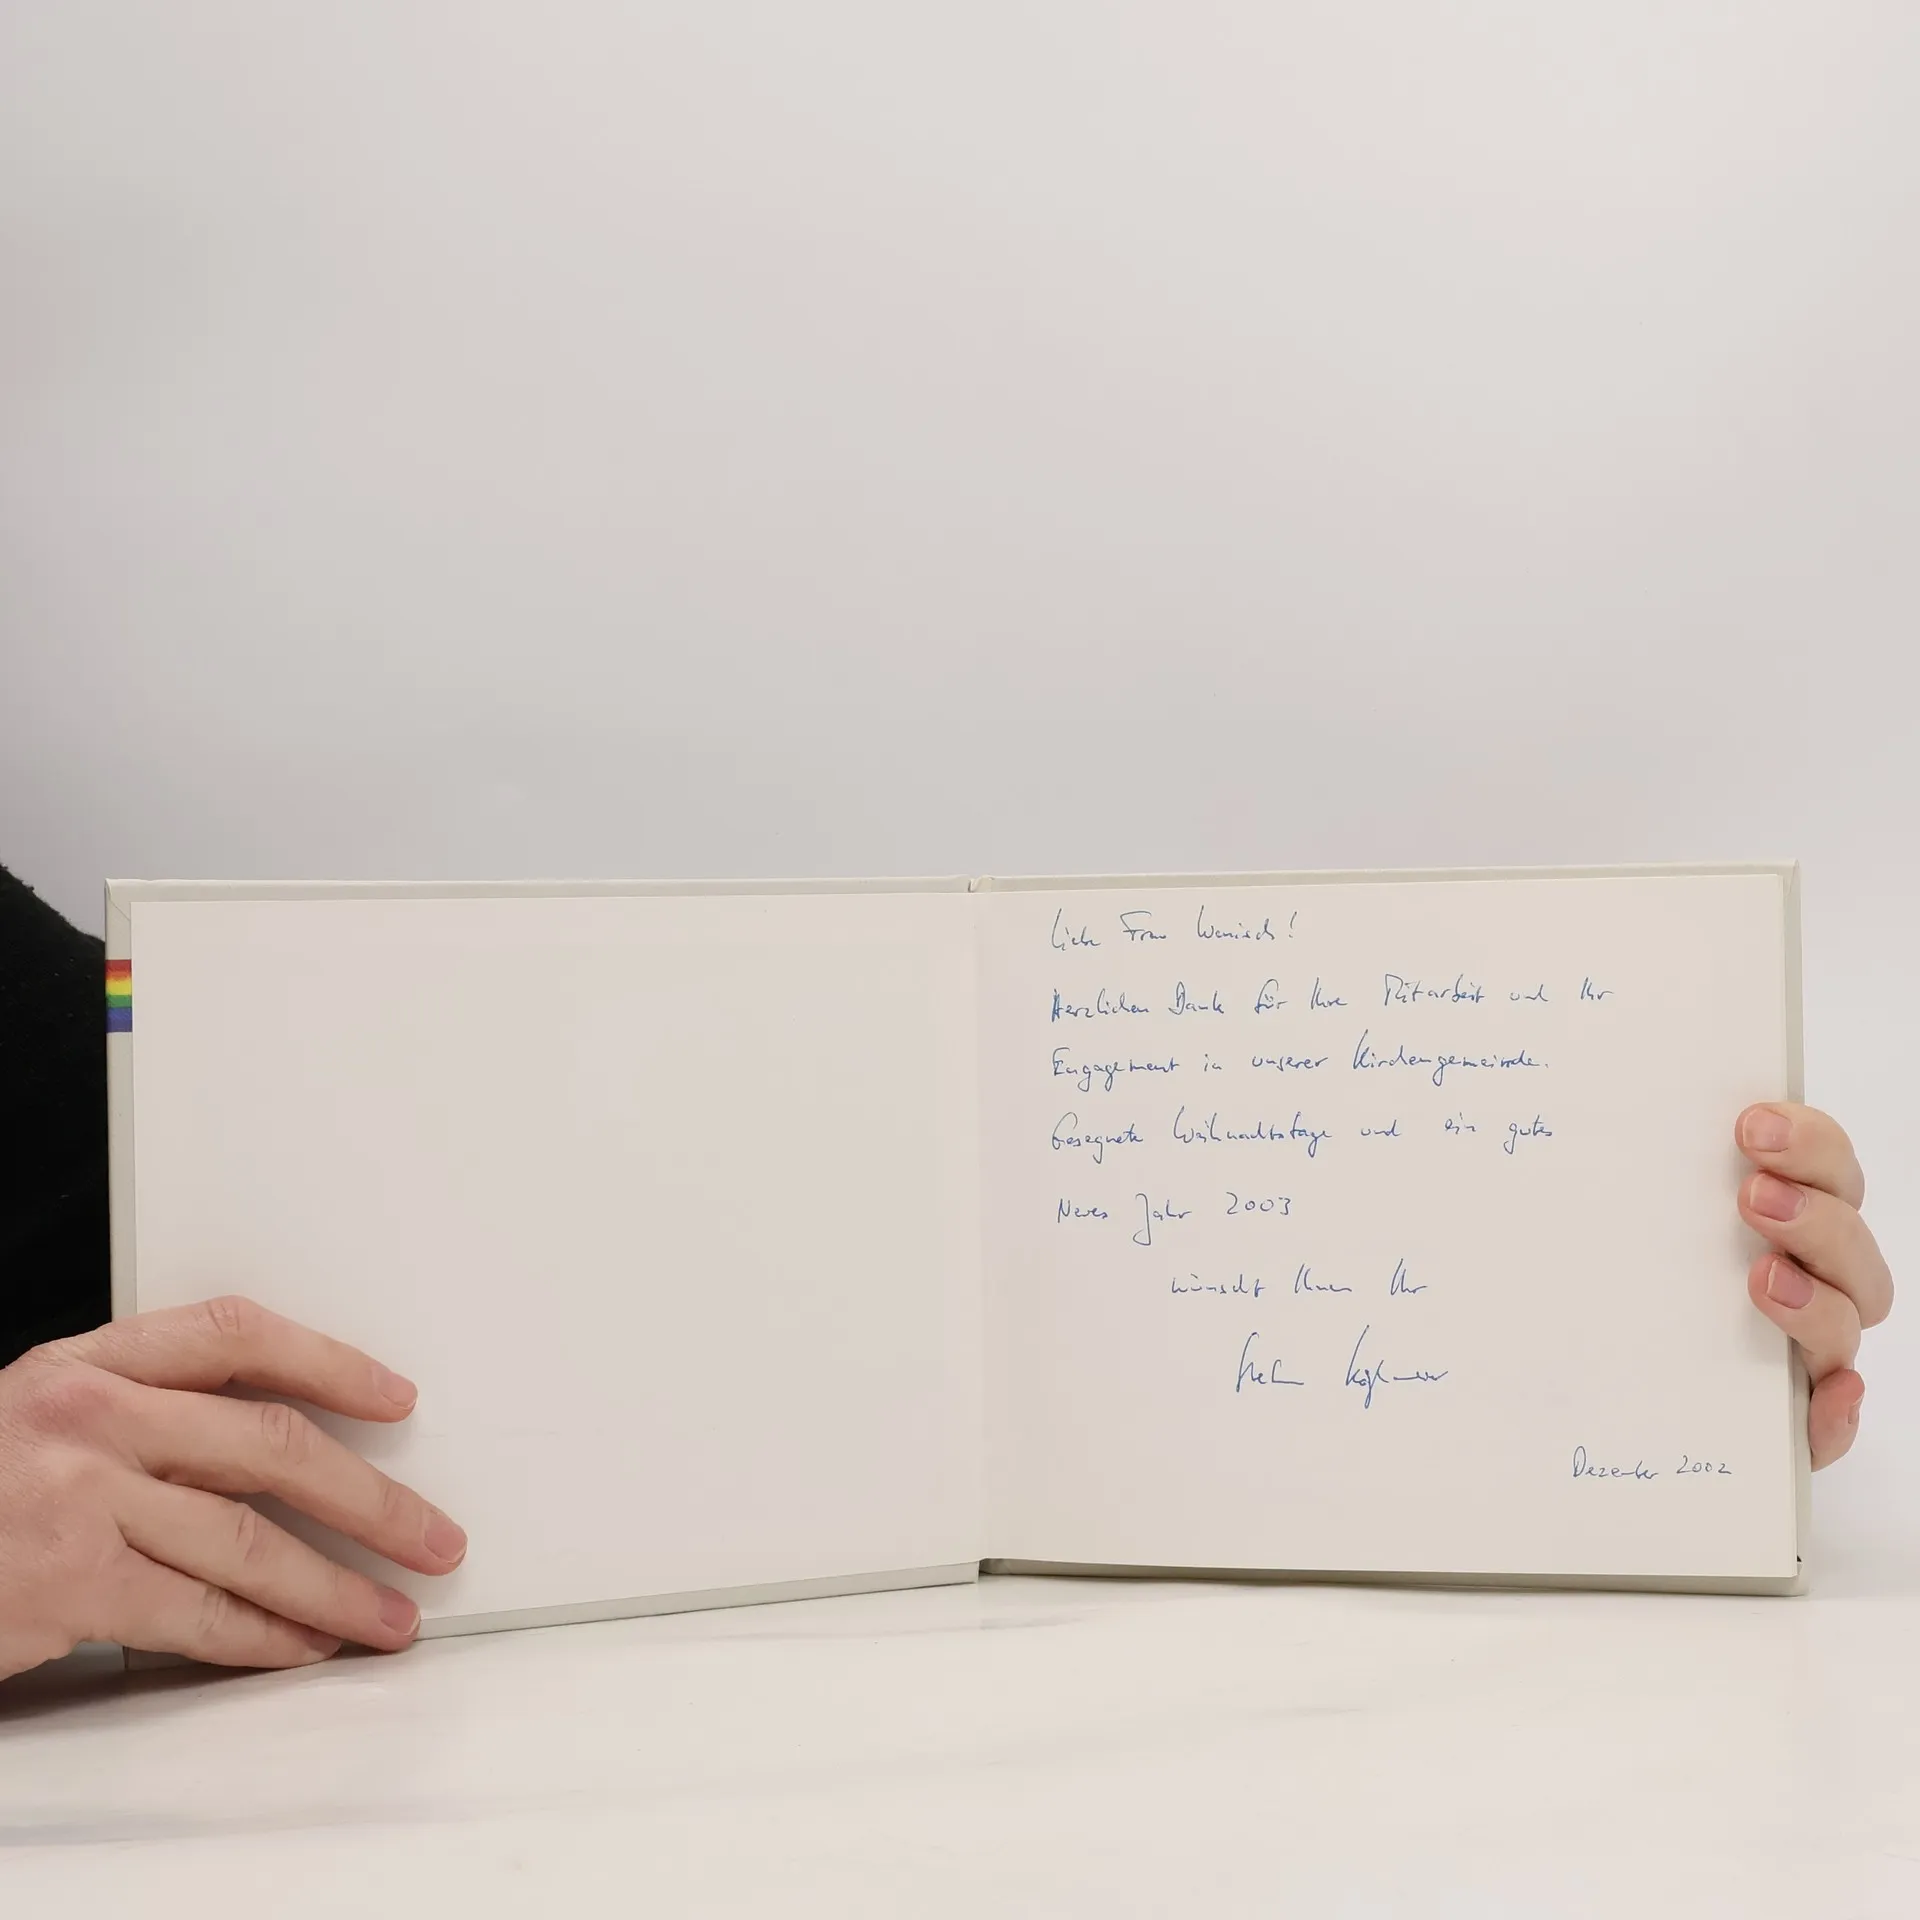 Liebe Frau Wanisch!
Herzlichen Dank für Ihre Mitarbeit und Ihr
Engagement in unserer Kirchengemeinde.
Gesegnete Weihnachtstage und ein gutes
Neues Jahr 2003
wünscht Ihnen Ihr
Dezember 2002